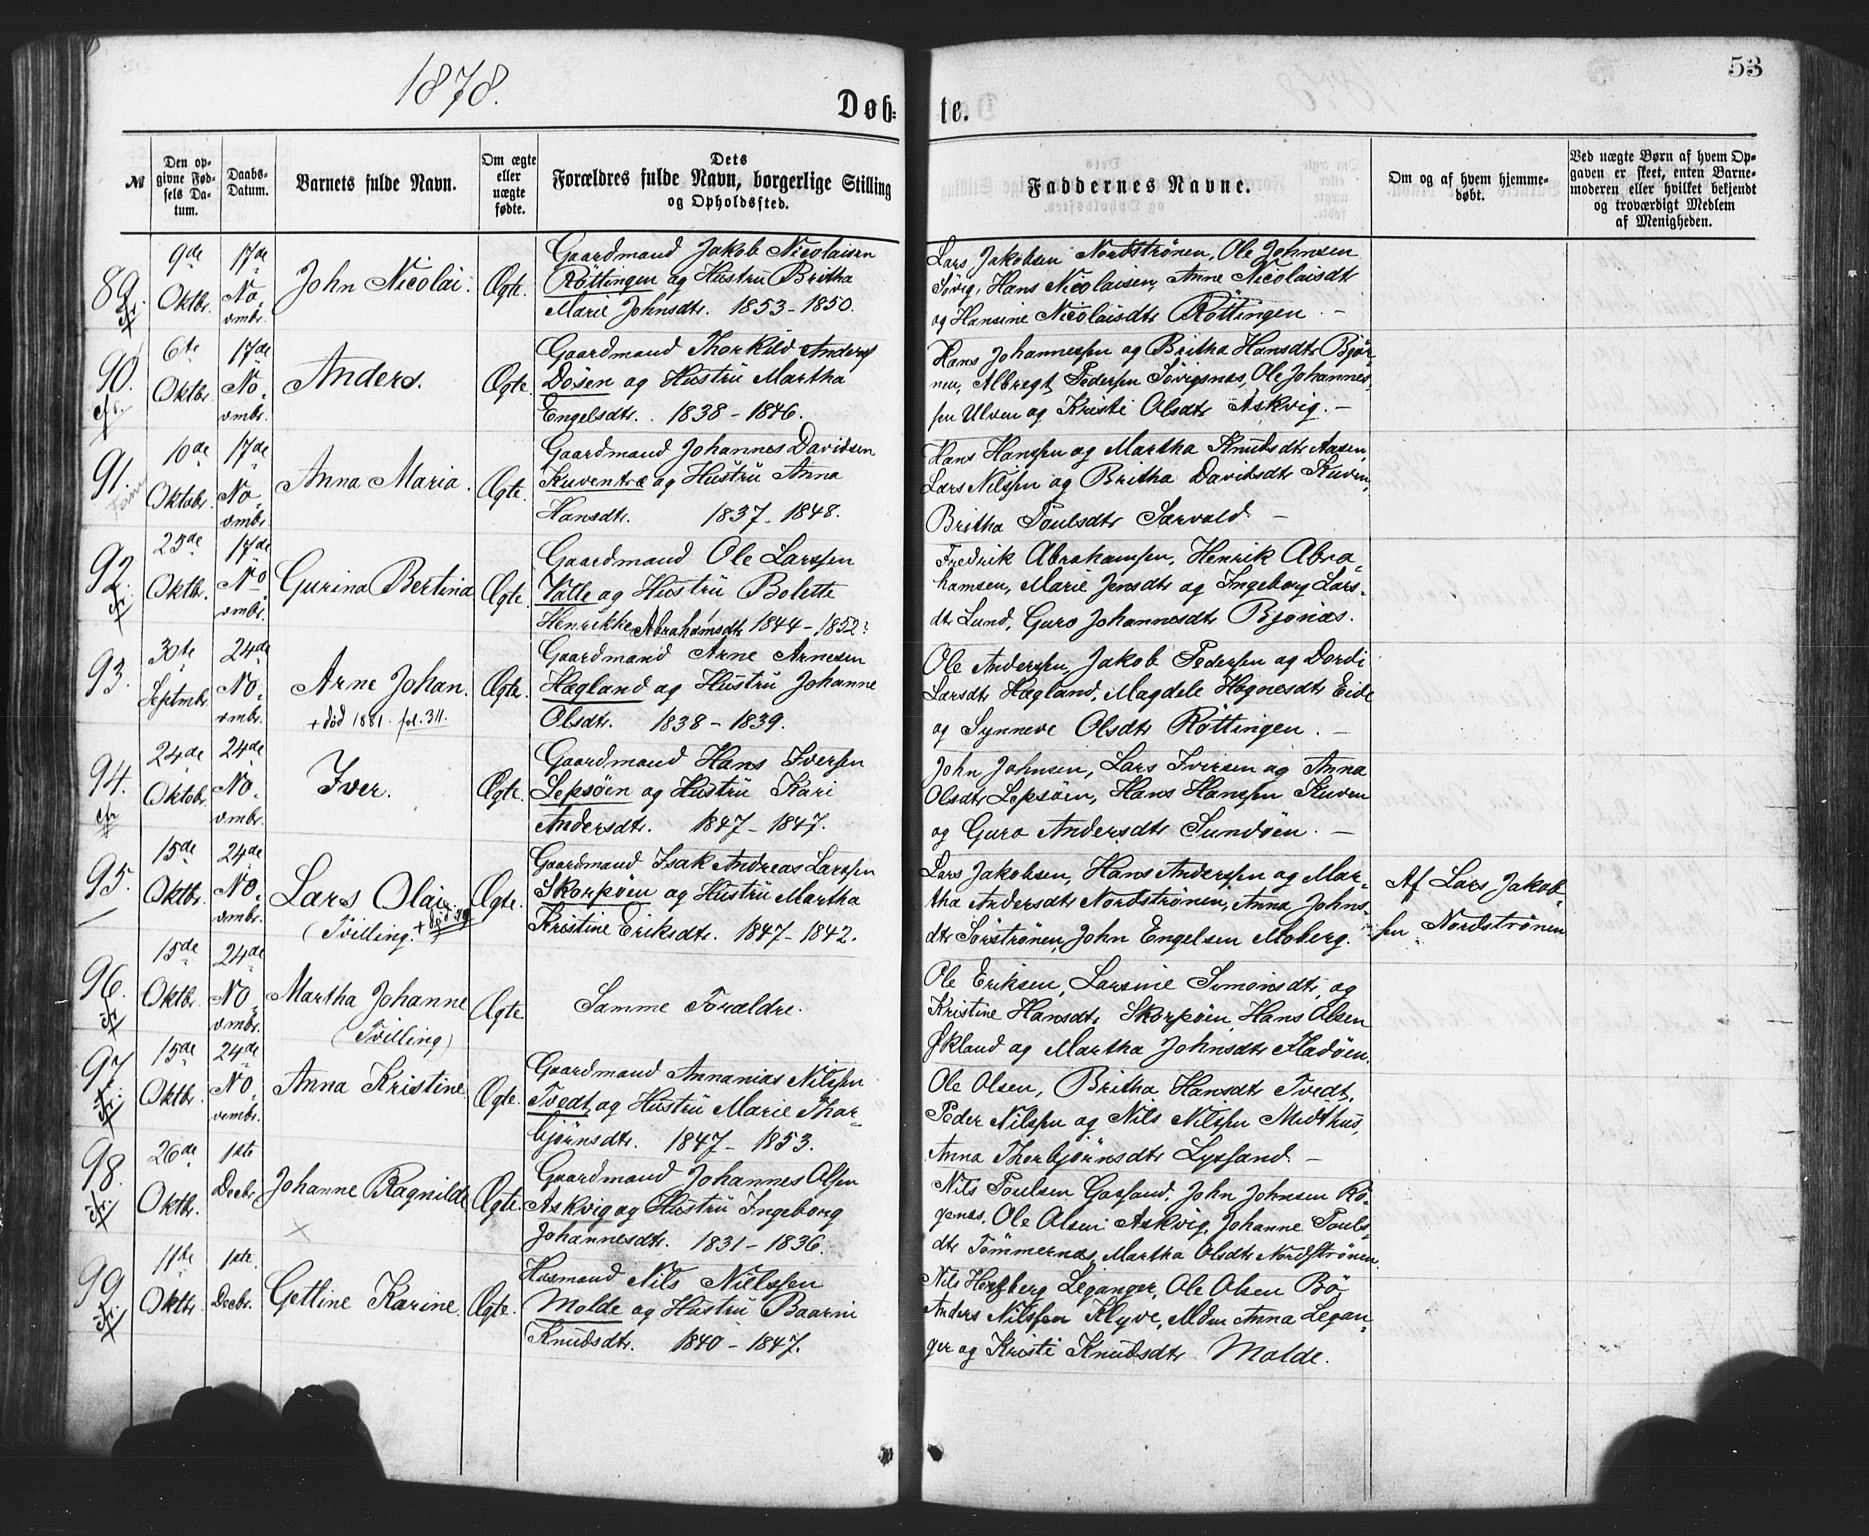 1878.
53
Døb-
te.
№
Den opgivne Fødsels Datum.
Daabs-Datum.
Barnets fulde Navn.
Om ægte eller uægte fødte.
Dets Forældres fulde Navn, borgerlige Stilling og Opholdssted.
Faddernes Navne.
Om og af hvem hjemmedøbt.
Ved uægte Børn af hvem Opgaven er skeet, enten Barnemoderen eller hvilket bekjendt og troværdigt Medlem af Menigheden.
89.
9de Oktbr.
17de November.
John Nicolai.
Ægte.
Gaardmand Jakob Nicolaisen
Röttingen og Hustru Britha
Marie Johnsdtr. 1853-1850.
Lars Jakobsen Nordströnen, Ole Johnsen
Søvig, Hans Nicolaisen, Anne Nicolaisdtr
og Hansine Nicolaisdtr Röttingen. -
90.
6te Oktbr.
17de November.
Anders.
Ægte.
Gaardmand Thorkild Anders
Døsen og Hustru Martha
Engelsdtr. 1838-1846.
Hans Johannessen og Britha Hansdtr Bjør-
nen, Albregt Pedersen Søvigsnæs, Ole Johannes-
sen Ulven og Kristi Olsdtr Askvig. -
91.
10de Oktobr.
17de November.
Anna Maria.
Ægte.
Gaardmand Johannes Davidsen
Kuventræ og Hustru Anna
Hansdtr. 1837-1848.
Hans Hanssen og Martha Knudsdtr Aasen,
Lars Nilssen og Britha Davidsdtr Kuven,
Britha Poulsdtr Særvold -
92.
25de Oktbr.
17de November.
Gurina Bertina
Ægte.
Gaardmand Ole Larssen
Valle og Hustru Bolette
Henrikke Abrahamsdtr 1844-1852.
Fredrik Abrahamsen, Henrik Abra-
hamsen, Marie Jensdtr og Ingeborg Lars-
dtr Lund, Guro Johannesdtr Bjønæs.
93.
30te Septmbr.
24de November.
Arne Johan.
+ död 1881. fol. 311.
Ægte.
Gaardmand Arne Arnesen
Hægland og Hustru Johanne
Olsdtr. 1838-1839.
Ole Anderssen, Jakob Pedersen og Dordi
Larsdtr Hægland, Magdele Hognesdtr Eide
og Synneve Olsdtr Röttingen. -
94.
24de Oktobr.
24de November.
Iver.
Ægte.
Gaardmand Hans Iversen
Lepsöen og Hustru Kari
Andersdtr. 1847-1847.
John Johnsen, Lars Iversen og Anna
Olsdtr Lepsöen, Hans Hanssen Kuven
og Guro Andersdtr Sundöen. -
95.
15de Oktbr.
24de November.
Lars Olai.
(Tvilling.
Ægte.
Gaardmand Isak Andreas Larssen
Skorpöen og Hustru Martha
Kristine Eriksdtr. 1847-1842.
Lars Jakobsen, Hans Anderssen og Mar-
tha Andersdtr Nordströnen, Anna Johns-
dtr Sørströnen, John Engelsen Moberg.
Af Lars Jakob-
sen Nordströnen
96.
15de Oktbr.
24de November.
Martha Johanne
(Tvilling)
Ægte
Samme Forældre.
Ole Eriksen, Larsine Simonsdtr, og
Kristine Hansdtr Skorpöen, Hans Olsen
Økland og Martha Johnsdtr Fladöen.
97.
15de Oktbr.
24de November.
Anna Kristine
Ægte.
Gaardmand Annanias Nilssen
Tvedt og Hustru Marie Thor-
bjørnsdtr. 1847-1853.
Ole Olsen, Britha Hansdtr Tvedt,
Peder Nilssen og Nils Nilssen Midthus,
Anna Thorbjørnsdtr Lyssand -
98.
26de Oktbr.
1ste Decbr.
Johanne Ragnilde
Ægte.
Gaardmand Johannes Olsen
Askvig og Hustru Ingeborg
Johannesdtr. 1831-1836.
Nils Poulsen Gaasand, John Johnsen Rø-
genes, Ole Olsen Askvig, Johanne Pouls-
dtr Tømmernæs, Martha Olsdtr Nordströnen.
99.
11te Oktbr.
1ste Decbr.
Gettine Karine.
Ægte.
Husmand Nils Nielssen
Molde og Hustru Baarni
Knudsdtr. 1840-1847.
Nils Hertzberg Leganger, Ole Olsen Bö,
Anders Nilssen Klyve, Anna Legan-
ger og Kristi Knudsdtr Molde.